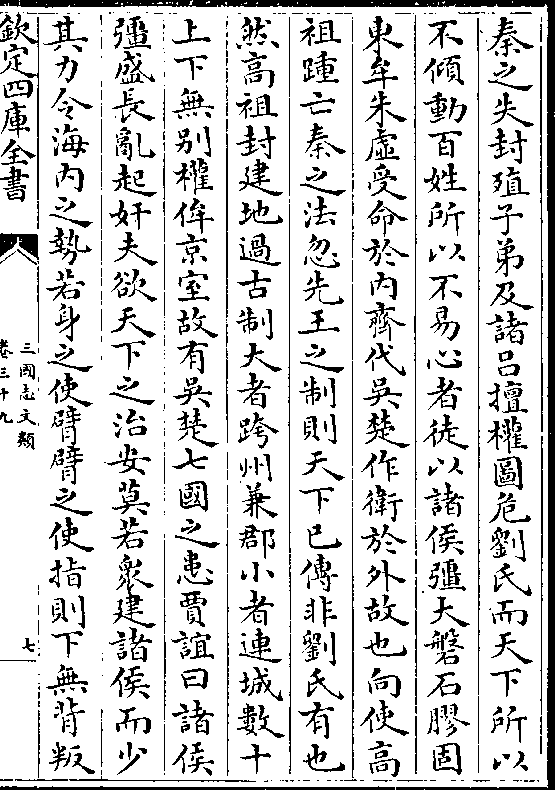 秦之失封殖子弟及諸吕擅權圖危劉氏而天下所以
不傾動百姓所以不易心者徒以諸侯彊大磐石膠固
東牟朱虚受命於内齊代吳楚作衛於外故也向使高
祖踵亡秦之法忽先王之制則天下已傳非劉氏有也
然高祖封建地過古制大者跨州兼郡小者連城數十
上下無别權侔京室故有吳楚七國之患賈誼曰諸侯
彊盛長亂起奸夫欲天下之治安莫若衆建諸侯而少
其力令海内之勢若身之使臂臂之使指則下無背叛
欽定四庫全書
三國志文類
卷三十九
七